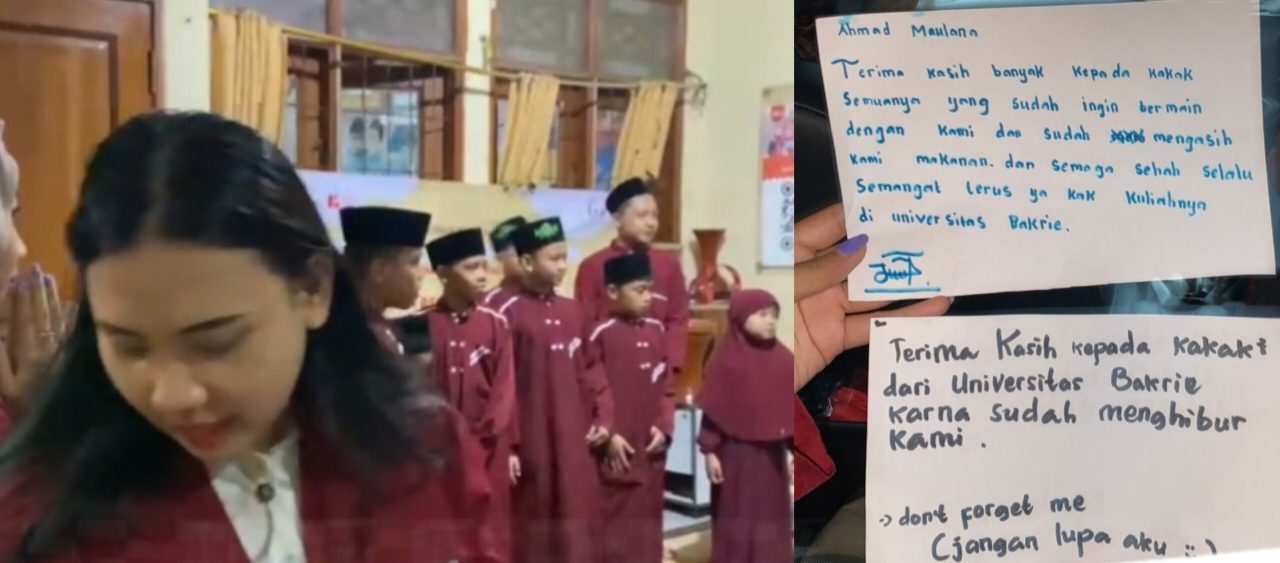 Ahmad Maulana
Terima kasih banyak kepada kakak
semuanya yang sudah ingin bermain
dengan kami dan sudah mengasih
kami makanan. dan semoga sehah selalu
semangat terus ya kak kuliahnya
di universitas Bakrie.
Terima Kasih kepada kakak²
dari Universitas Bakrie
karna sudah menghibur
kami.
-> don't forget me
(jangan lupa aku :)